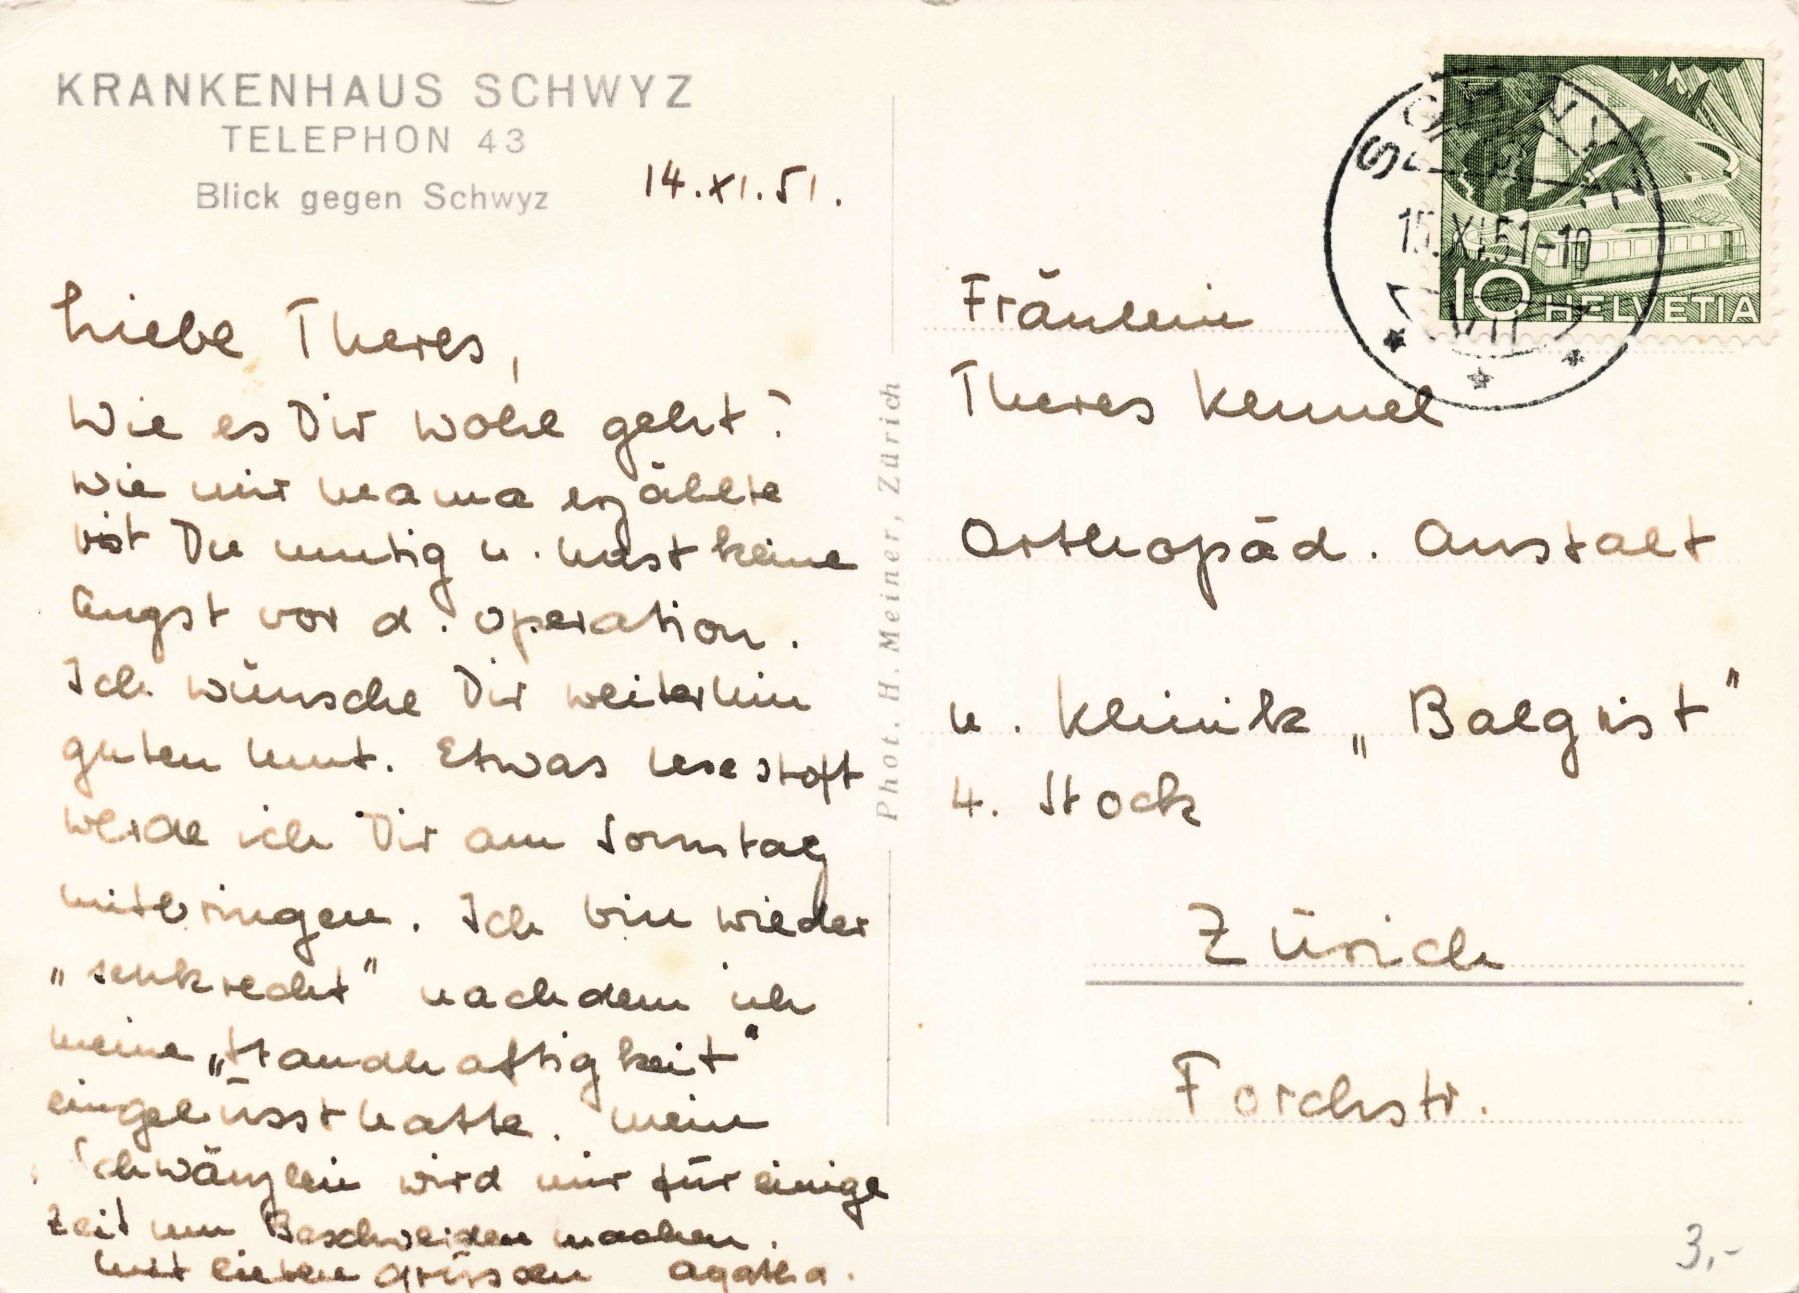 KRANKENHAUS SCHWYZ
TELEPHON 43
Blick gegen Schwyz
14.XI.51.
Liebe Theres,
Wie es Dir wohl geht?
Wie mir Mama erzählte
bist Du mutig u. hast keine
Angst vor d. Operation.
Ich wünsche Dir weiterhin
guten Mut. Etwas Lesestoff
werde ich Dir am Sonntag
mitbringen. Ich bin wieder
„senkrecht" nachdem ich
meine „Standhaftigkeit"
eingebüsst hatte. Mein
Schwänzlein wird mir für einige
Zeit nun Beschweiden machen.
Mit lieben Grüssen Agatha.
Phot. H. Meiner, Zürich
SCHWYZ
15.XI.51-10
VII
10 HELVETIA
Fräulein
Theres Kennel
Orthopäd. Anstalt
u. Klinik „Balgrist"
4. Stock
Zürich
Forchstr.
3,-